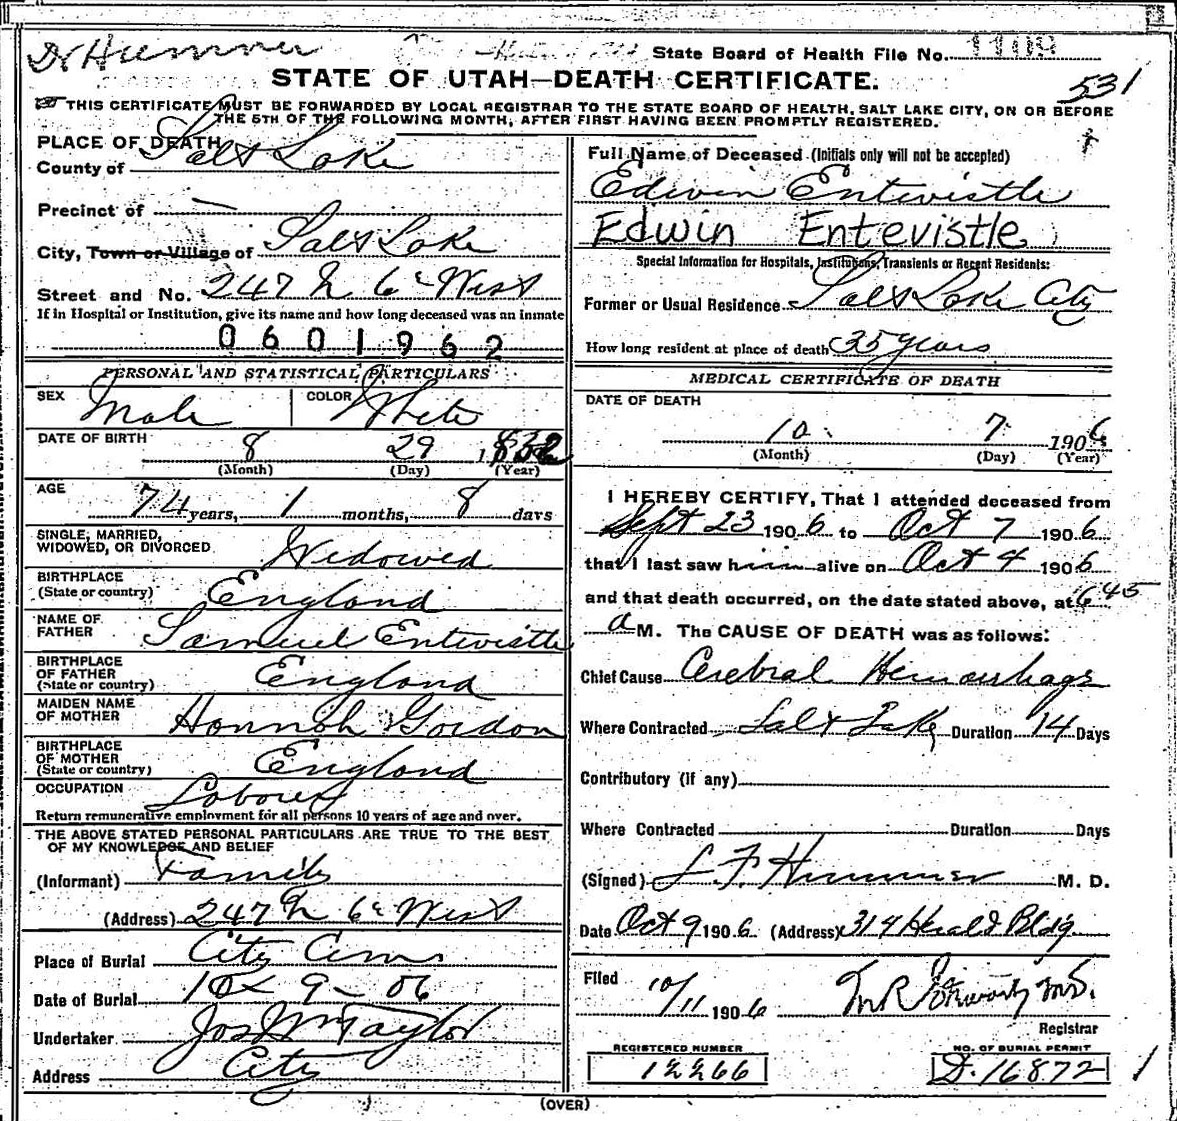 Dr Hummer
State Board of Health File No. 1109
STATE OF UTAH—DEATH CERTIFICATE.
531
THIS CERTIFICATE MUST BE FORWARDED BY LOCAL REGISTRAR TO THE STATE BOARD OF HEALTH, SALT LAKE CITY, ON OR BEFORE
THE 5TH OF THE FOLLOWING MONTH, AFTER FIRST HAVING BEEN PROMPTLY REGISTERED.
PLACE OF DEATH
County of Salt Lake
Precinct of —
City, Town or Village of Salt Lake
Street and No. 247 N 6th West
If in Hospital or Institution, give its name and how long deceased was an inmate
0601962
PERSONAL AND STATISTICAL PARTICULARS
SEX Male COLOR White
DATE OF BIRTH 8 29 1832
(Month) (Day) (Year)
AGE
74 years, 1 months, 8 days
SINGLE, MARRIED,
WIDOWED, OR DIVORCED Widowed
BIRTHPLACE
(State or country) England
NAME OF
FATHER Samuel Entwistle
BIRTHPLACE
OF FATHER
(State or country) England
MAIDEN NAME
OF MOTHER Hannah Gordon
BIRTHPLACE
OF MOTHER
(State or country) England
OCCUPATION Laborer
Return remunerative employment for all persons 10 years of age and over.
THE ABOVE STATED PERSONAL PARTICULARS ARE TRUE TO THE BEST
OF MY KNOWLEDGE AND BELIEF
(Informant) Family
(Address) 247 N 6th West
Place of Burial City Cem
Date of Burial 10 - 9 - 06
Undertaker Jos Wm Taylor
Address City
Full Name of Deceased (Initials only will not be accepted)
Edwin Entevistle
Edwin Entevistle
Special Information for Hospitals, Institutions, Transients or Recent Residents:
Former or Usual Residence Salt Lake City
How long resident at place of death 35 years
MEDICAL CERTIFICATE OF DEATH
DATE OF DEATH
10 7 1906
(Month) (Day) (Year)
I HEREBY CERTIFY, That I attended deceased from
Sept 23 1906 to Oct 7 1906
that I last saw him alive on Oct 4 1906
and that death occurred, on the date stated above, at 6 45
a M. The CAUSE OF DEATH was as follows:
Chief Cause Cerebral Hemorrhage
Where Contracted Salt Lake Duration 14 Days
Contributory (if any)
Where Contracted Duration Days
(Signed) L. F. Hummer M. D.
Date Oct 9 1906 (Address) 314 Herald Bldg.
Filed 10/11 1906 M.D.
Registrar
REGISTERED NUMBER NO. OF BURIAL PERMIT
12266 D. 16872
(OVER)